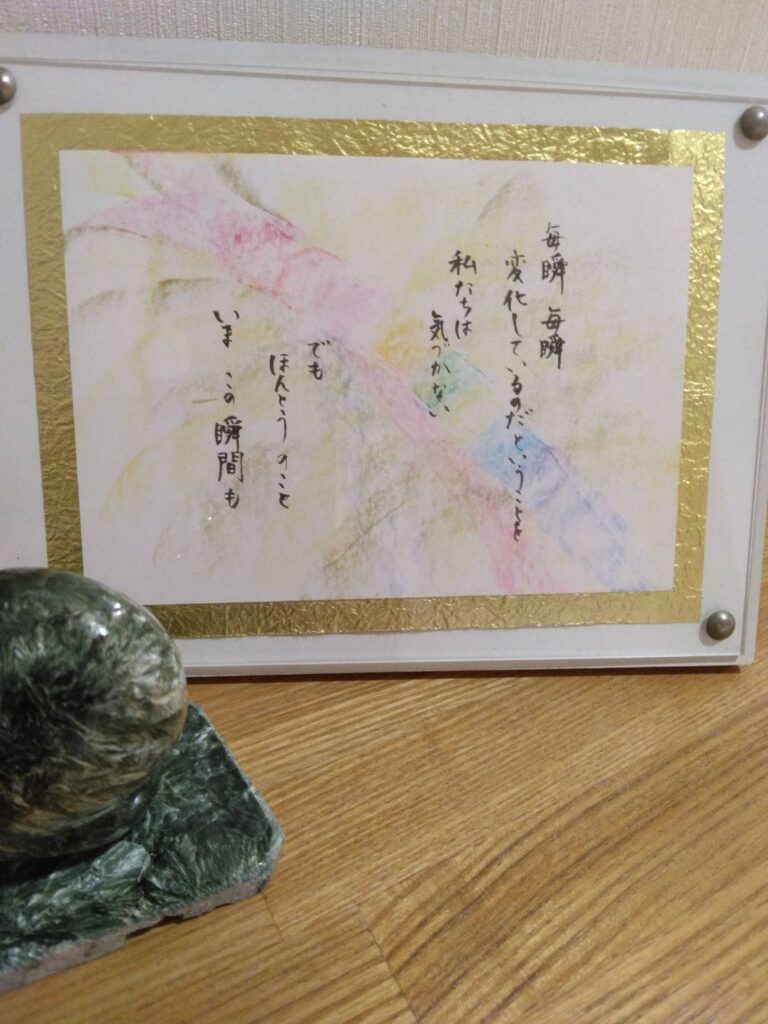 毎瞬 毎瞬
変化しているのだということを
私たちは
気づかない
でも
ほんとうのこと
いま この瞬間も